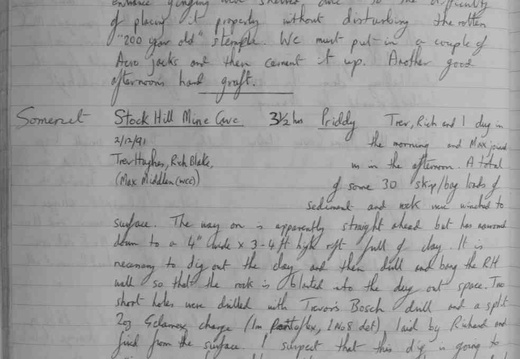 of placing it properly without disturbing the rotten
"200 year old" stemple. We must put in a couple of
Acro jacks and then cement it up. Another good
afternoons hard graft.
Somerset Stock Hill Mine Cave 3½ hrs Priddy Trev, Rich and I dug in
2/12/91 the morning and Max joined
Trev Hughes, Rich Blake, us in the afternoon. A total
(Max Midden (WCC)) of some 30 skip/bag loads of
sediment and rock were winched to
surface. The way on is apparently straight ahead but has narrowed
down to a 4" wide x 3-4 ft high rift full of clay. It is
necessary to dig out the clay and then drill and bang the RH
wall so that the rock is blasted into the dug out space. Two
short holes were drilled with Trevor's Bosch drill and a split
2oz Gelamex charge (1m 1 No8 det) laid by Richard and
fired from the surface. I suspect that this dig is going to